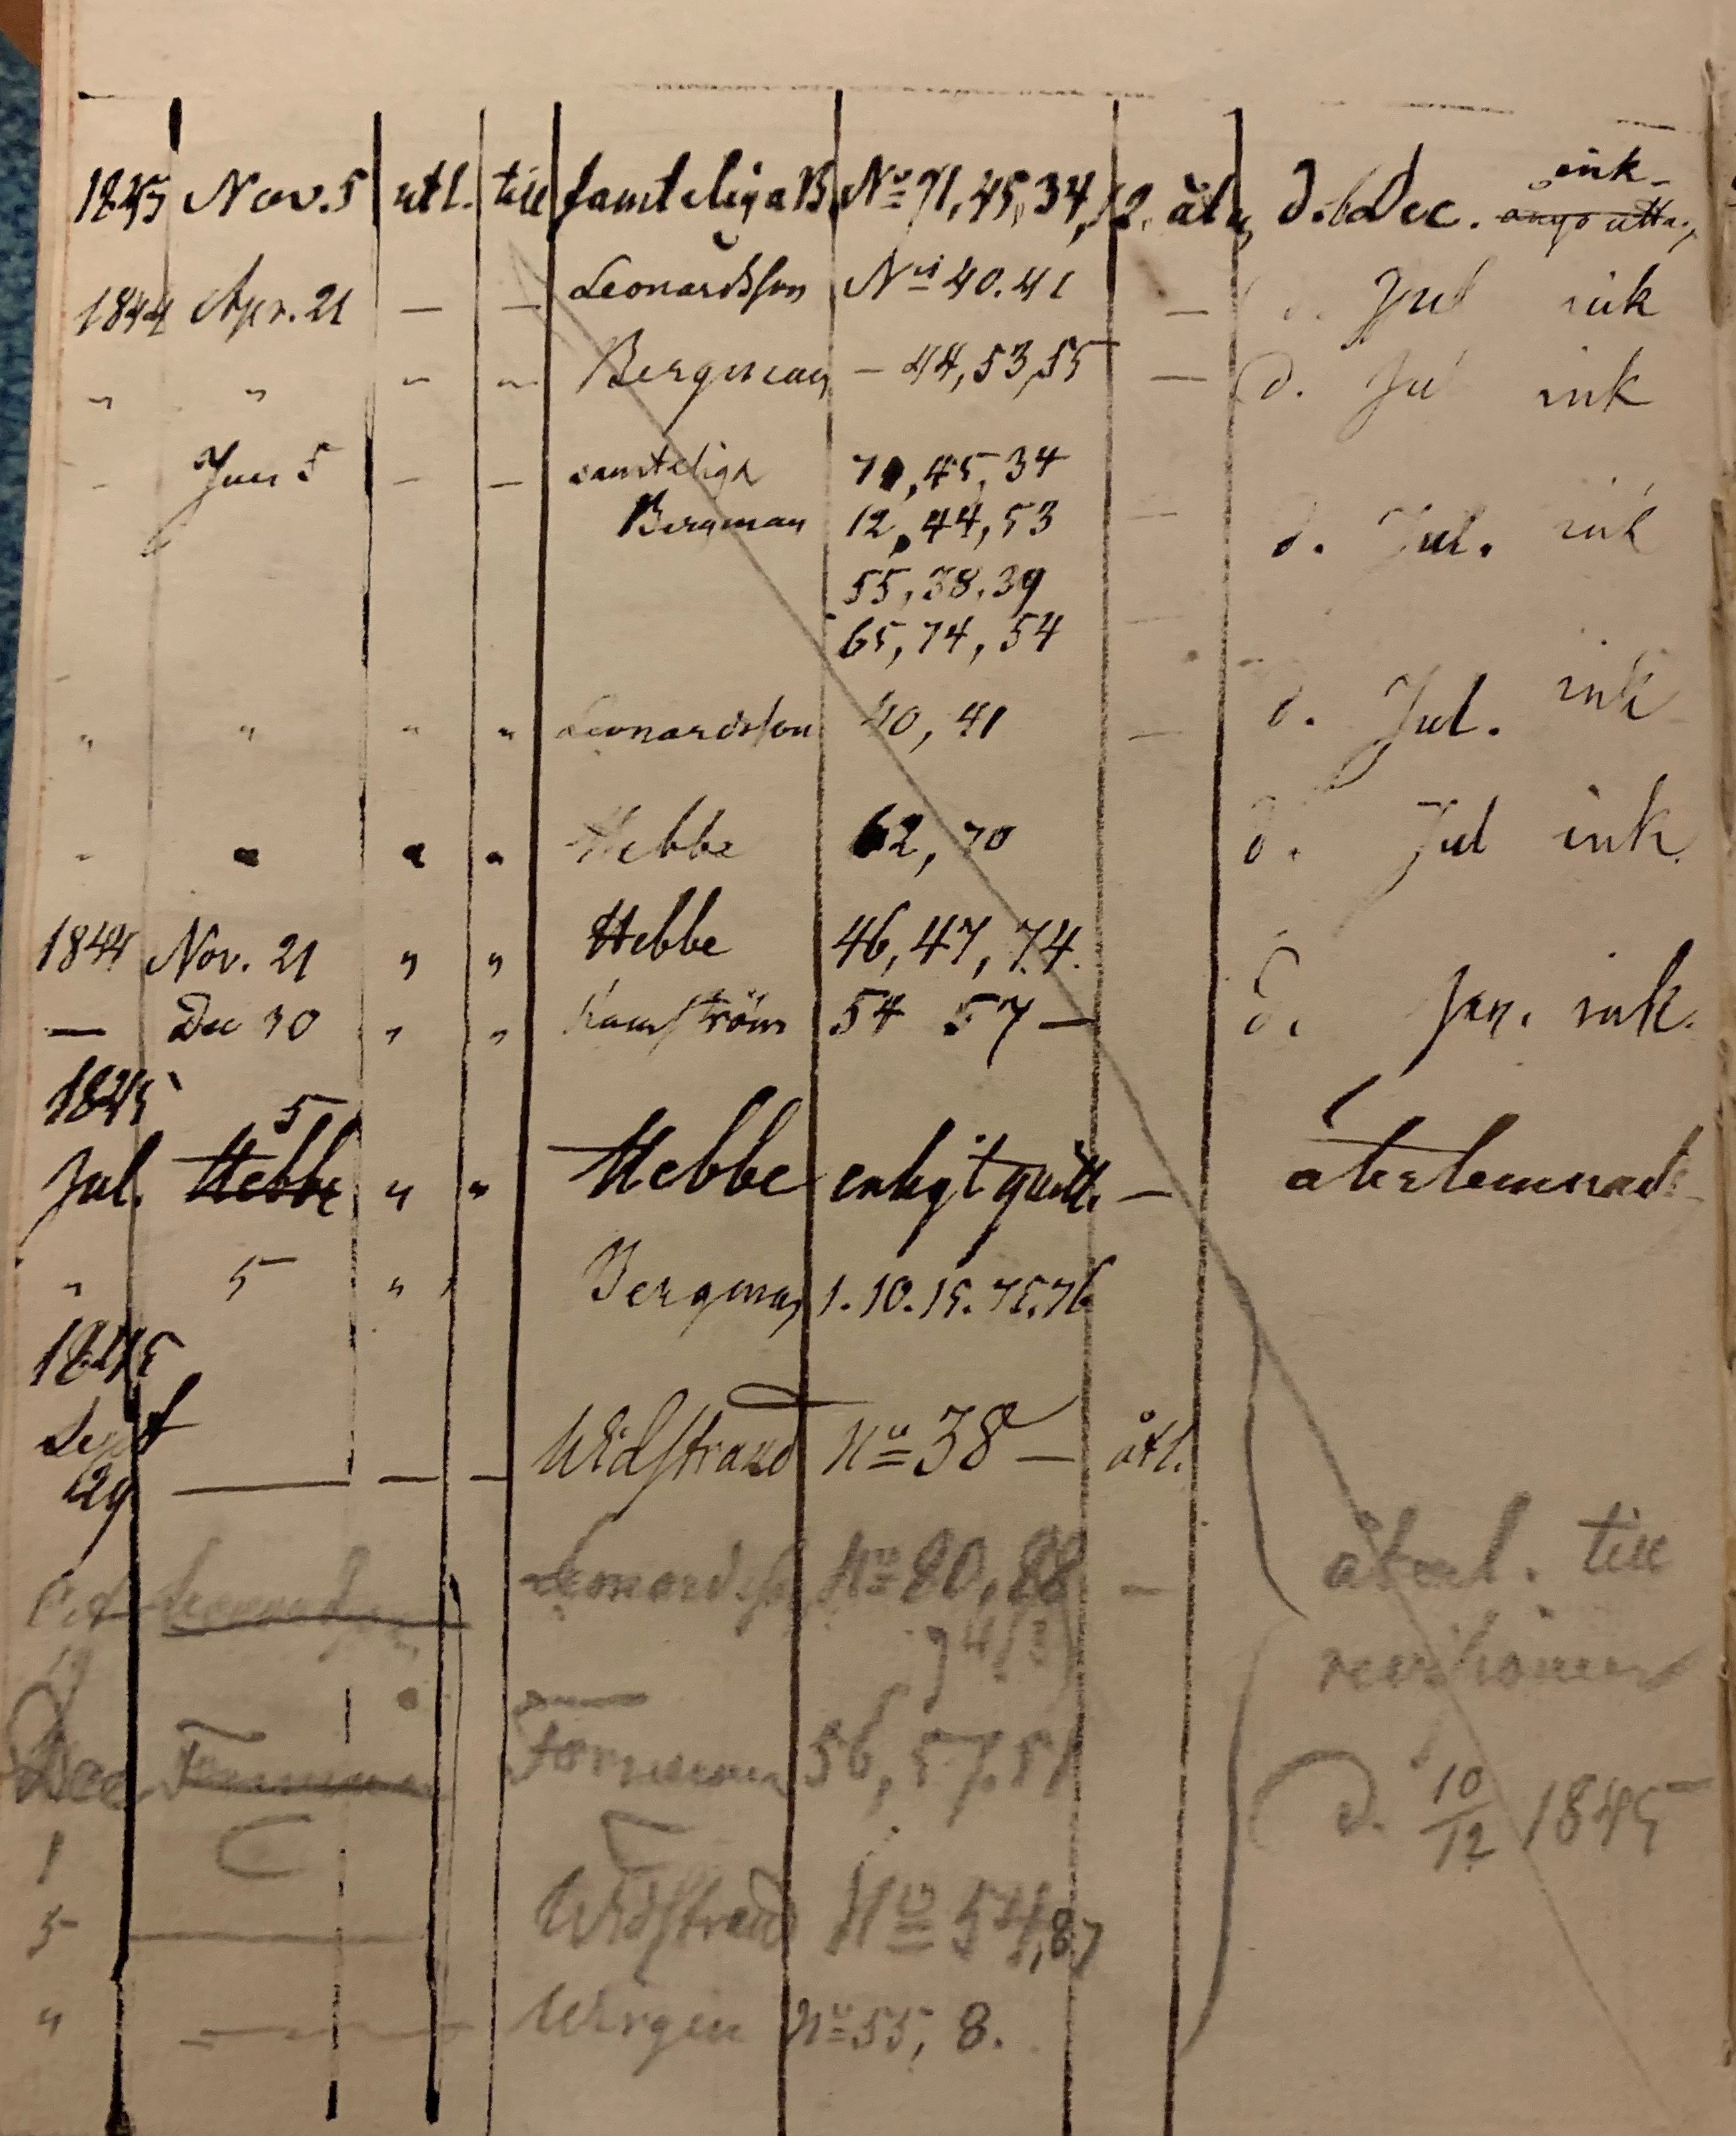 Nov. 5 utl. till samteliga B. No 71, 45, 34, 12. åt. d. 6 Dec. ink
1844 Apr. 21 — — Leonardsson No 40. 41 — d. Jul ink
" " " " Bergman — 44, 53, 55 — d. Jul ink
- Jun 5 — — samteliga 71, 45, 34
Bergman 12, 44, 53 — d. Jul. ink
55, 38, 39
65, 74, 54
" " " " Leonardsson 40, 41 — d. Jul. ink
" " " " Hebbe 62, 70 d. Jul ink.
1844 Nov. 21 " " Hebbe 46, 47, 74.
— Dec 30 " " 54 57 — d. Jan. ink.
1845
5
Jul. Hebbe " " Hebbe enligt quitt. — återlemnad
" 5 " " Bergman 1. 10. 15. 75. 76
1845
Sept
29 — — — Widstrand No 38 — åtl.
Oct Leonardsson No 80, 88 —
återl. till
19
revisionen
Dec 56, 57, 51
d. 10/12 1845
1
5 Widstrand No 54, 87
" No 55, 8.